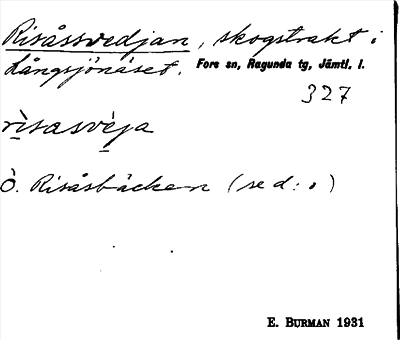 Risåssvedjan, skogstrakt i
Långsjönäset. Fors sn, Ragunda tg, Jämtl. l.
327
rìsasvèja
Ö. Risåsbäcken (se d:o)
E. BURMAN 1931